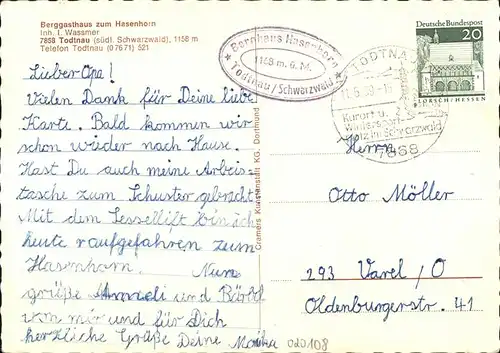 Berggasthaus zum Hasenhorn
Inh. I. Wassmer
7868 Todtnau (südl. Schwarzwald), 1158 m
Telefon Todtnau (07671) 521
Lieber Opa!
Vielen Dank für Deine liebe
Karte. Bald kommen wir
schon wieder nach Hause.
Hast Du auch meine Arbeits-
tasche zum Schuster gebracht.
Mit dem Sessellift bin ich
heute raufgefahren zum
Hasenhorn. Nun
grüße und Bärbel
von mir und für Dich
herzliche Grüße Deine Monika
020108
Cramers Kunstanstalt KG, Dortmund
Berghaus Hasenhorn
1158 m. ü. M.
* Todtnau/Schwarzwald *
TODTNAU
Kurort u.
Wintersport
platz im Schwarzwald
7868
Deutsche Bundespost
20
LORSCH/HESSEN
Herrn
Otto Möller
293 Varel/O
Oldenburgerstr. 41